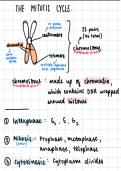 THE MITOTIC CYCLE.
centromere
23 pairs
(46 total)
chromatin
chromosomes
telomere
chromosomes : made up of chromatin,
which contains DNA wrapped
around histones
① Interphase : G₁, S, G₂
② Mitosis : Prophase, metaphase,
anaphase, telophase
③ Cytokinesis : Cytoplasm divides